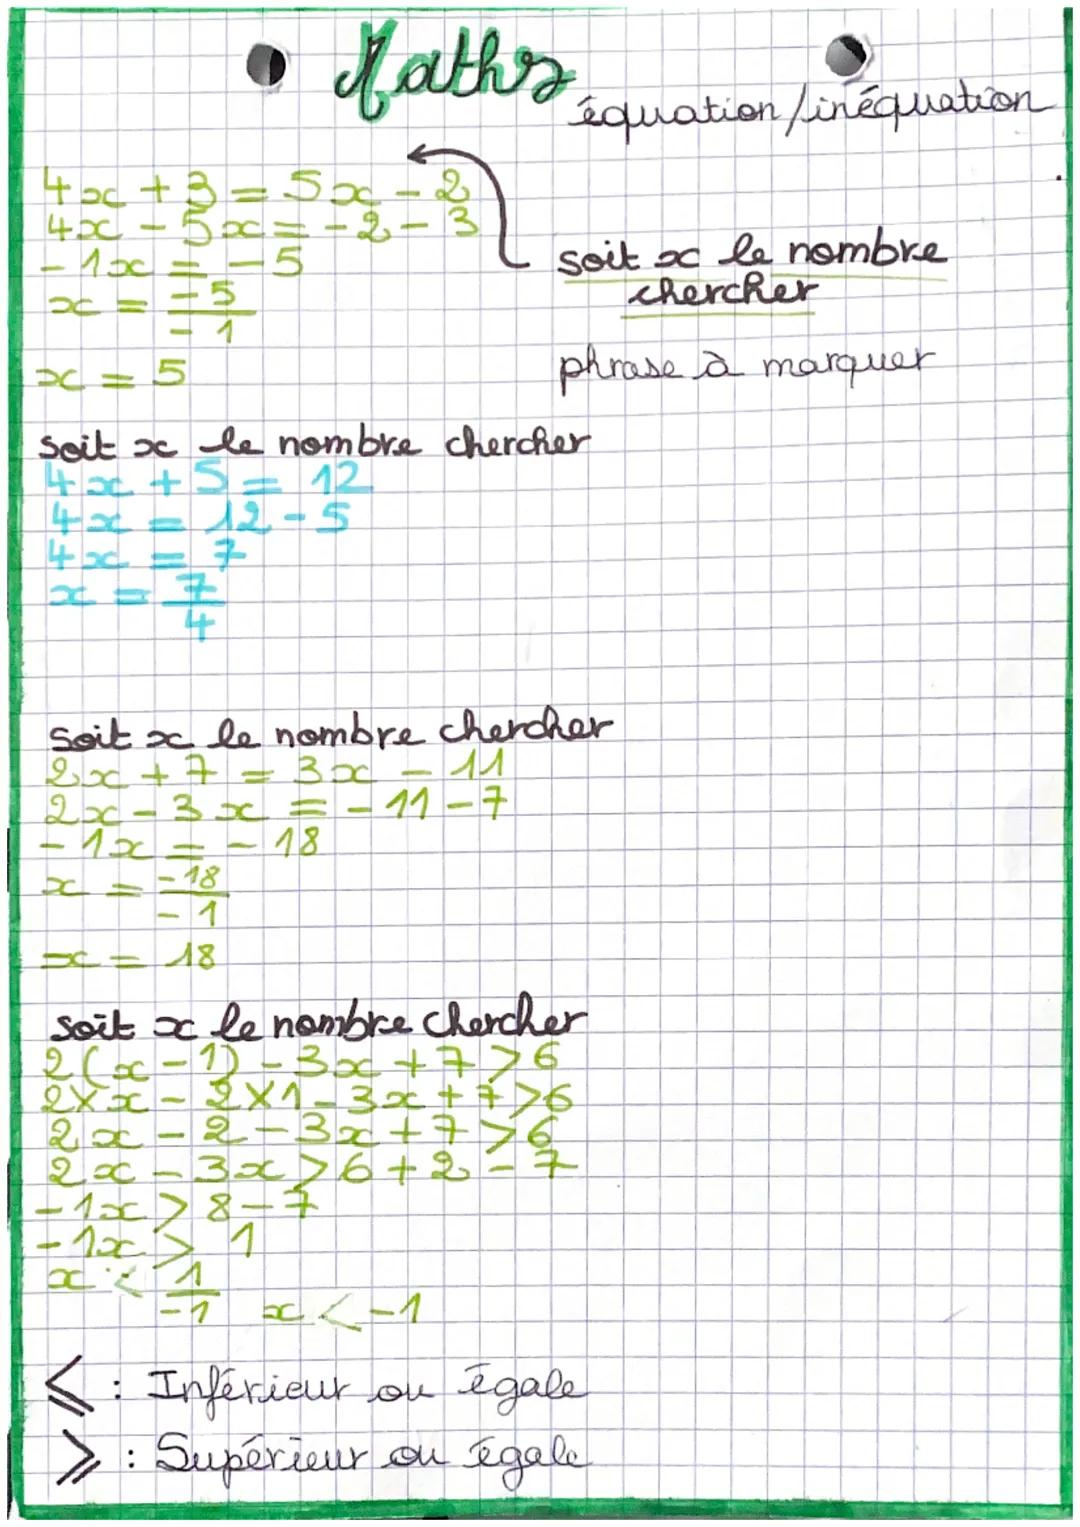 Maths
équation/inéquation
4x + 3 = 5x - 2
4x - 5x = -2 - 3
- 1x = -5
x = -5/-1
x = 5
soit x le nombre
chercher
phrase à marquer
soit x le nombre chercher
4x + 5 = 12
4x = 12 - 5
4x = 7
x = 7/4
soit x le nombre chercher
2x + 7 = 3x - 11
2x - 3x = - 11 - 7
- 1x = - 18
x = -18/-1
x = 18
soit x le nombre chercher
2(x - 1) - 3x + 7 > 6
2×x - 2×1 - 3x + 7 > 6
2x - 2 - 3x + 7 > 6
2x - 3x > 6 + 2 - 7
- 1x > 8 - 7
- 1x > 1
x < 1/-1 x < -1
⩽ : Inférieur ou égale
⩾ : Supérieur ou égale